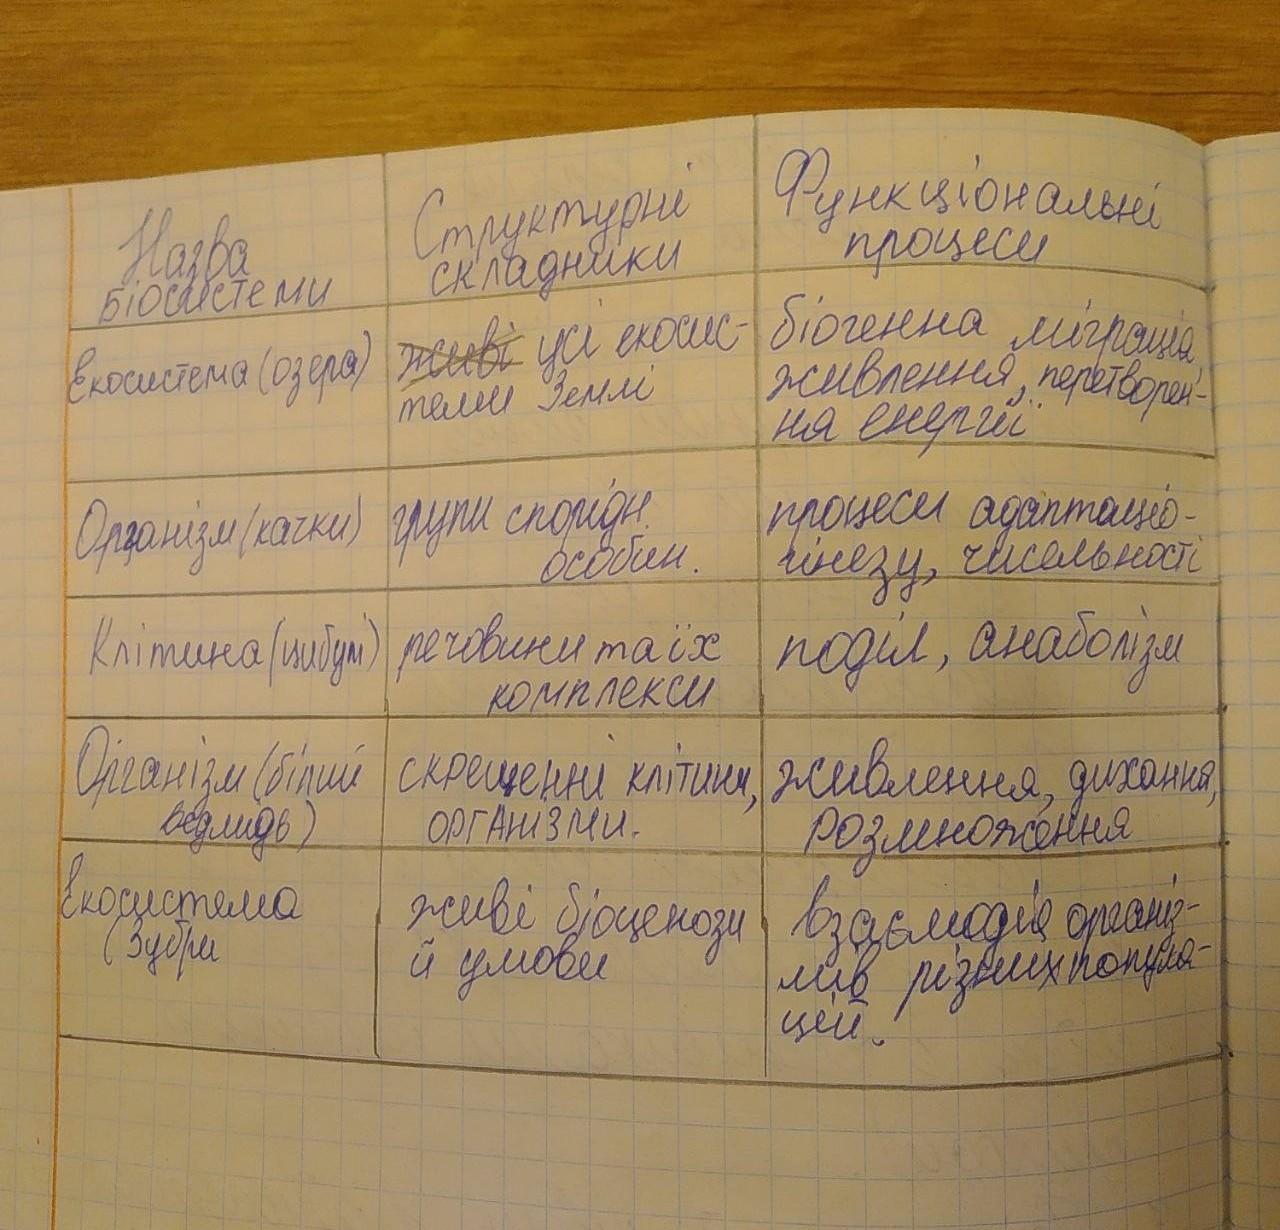 Назва
біосистеми
Структурні
складники
Функціональні
процеси
Екосистема (озера)
живі усі екосис-
теми Землі
біогенна міграція,
живлення, перетворен-
ня енергії
Організм (качки)
групи спорідн.
особин.
процеси адаптаціо-
гінезу, чисельності
Клітина (цибулі)
речовини та їх
комплекси
поділ, анаболізм
Організм (білий
ведмідь)
скрещенні клітини,
організми.
живлення, дихання,
розмноження
Екосистема
(Зубри
живі біоценози
й умови
взаємодія організ-
мів різних популя-
цій.